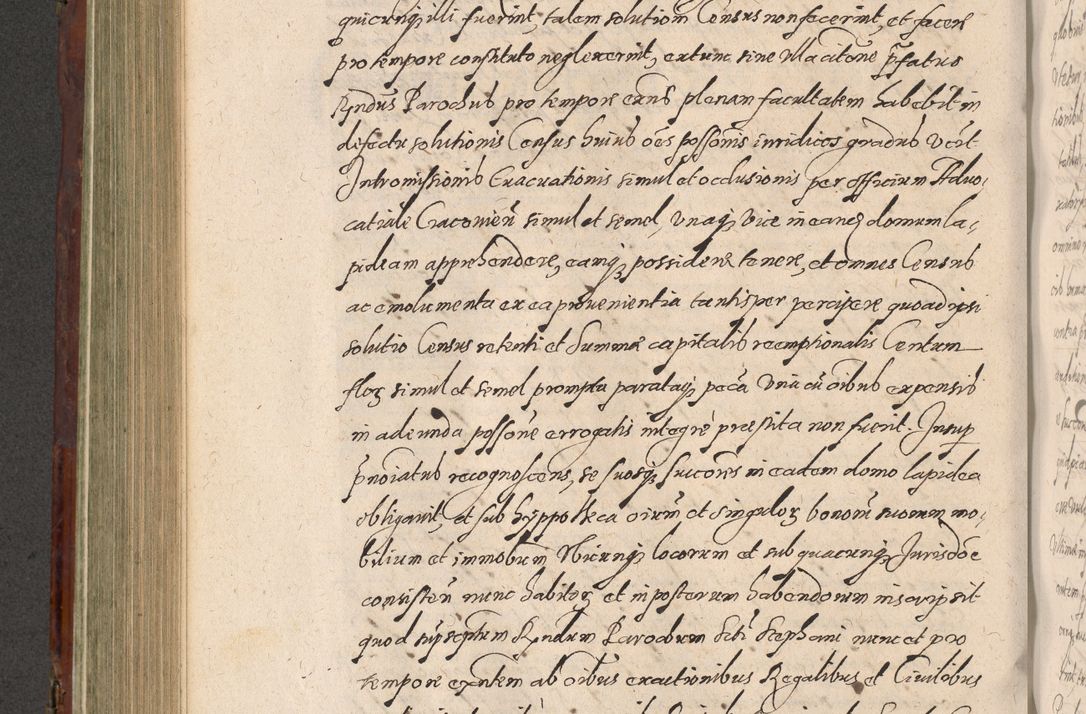 quicunq; illi fuerint, talem solutiom Census non fecerint, et facere
pro tempore constituto neglexerint, extunc sine ulla citatõne p̃fatus
Rndus Parochus pro tempore exñs plenam facultatem habebit in
defectu solutionis Census huius oẽs possõnis iuridicos gradus vcẽt
Intromissionis Evacuationis simul et occlusionis per officium Advo,
catiale Cracovieñ simul et semel, unaq; vice in eandẽ domum la,
pideam apprehendere, eamq; possidere tenere, et omnes Census
ac emolumenta ex ea provenientia tantisper percipere quoad ipsi
solutio Census retenti et Summæ capitalis reemptionalis Centum
flor simul et semel prompta parataq; pecã una cũ oĩbus expensis
in adeunda possõne errogatis integrè præstita non fuerit. Insup
p̃noĩatus recognoscens, se suosq; succõres in eadem domo lapidea
obligavit, et sub hyppotheca oĩum et singulor bonorũ suorum mo,
bilium et immobium Ubicunq; locorum et sub quacunq; Jurisdõe
consisteñ nunc habitor et in posterum habendorum inscripsit
quod supscptum Rndum Parochum Scti Stephani nunc et pro
tempore exñtem ab oĩbus exactionibus Regalibus et Civilibus